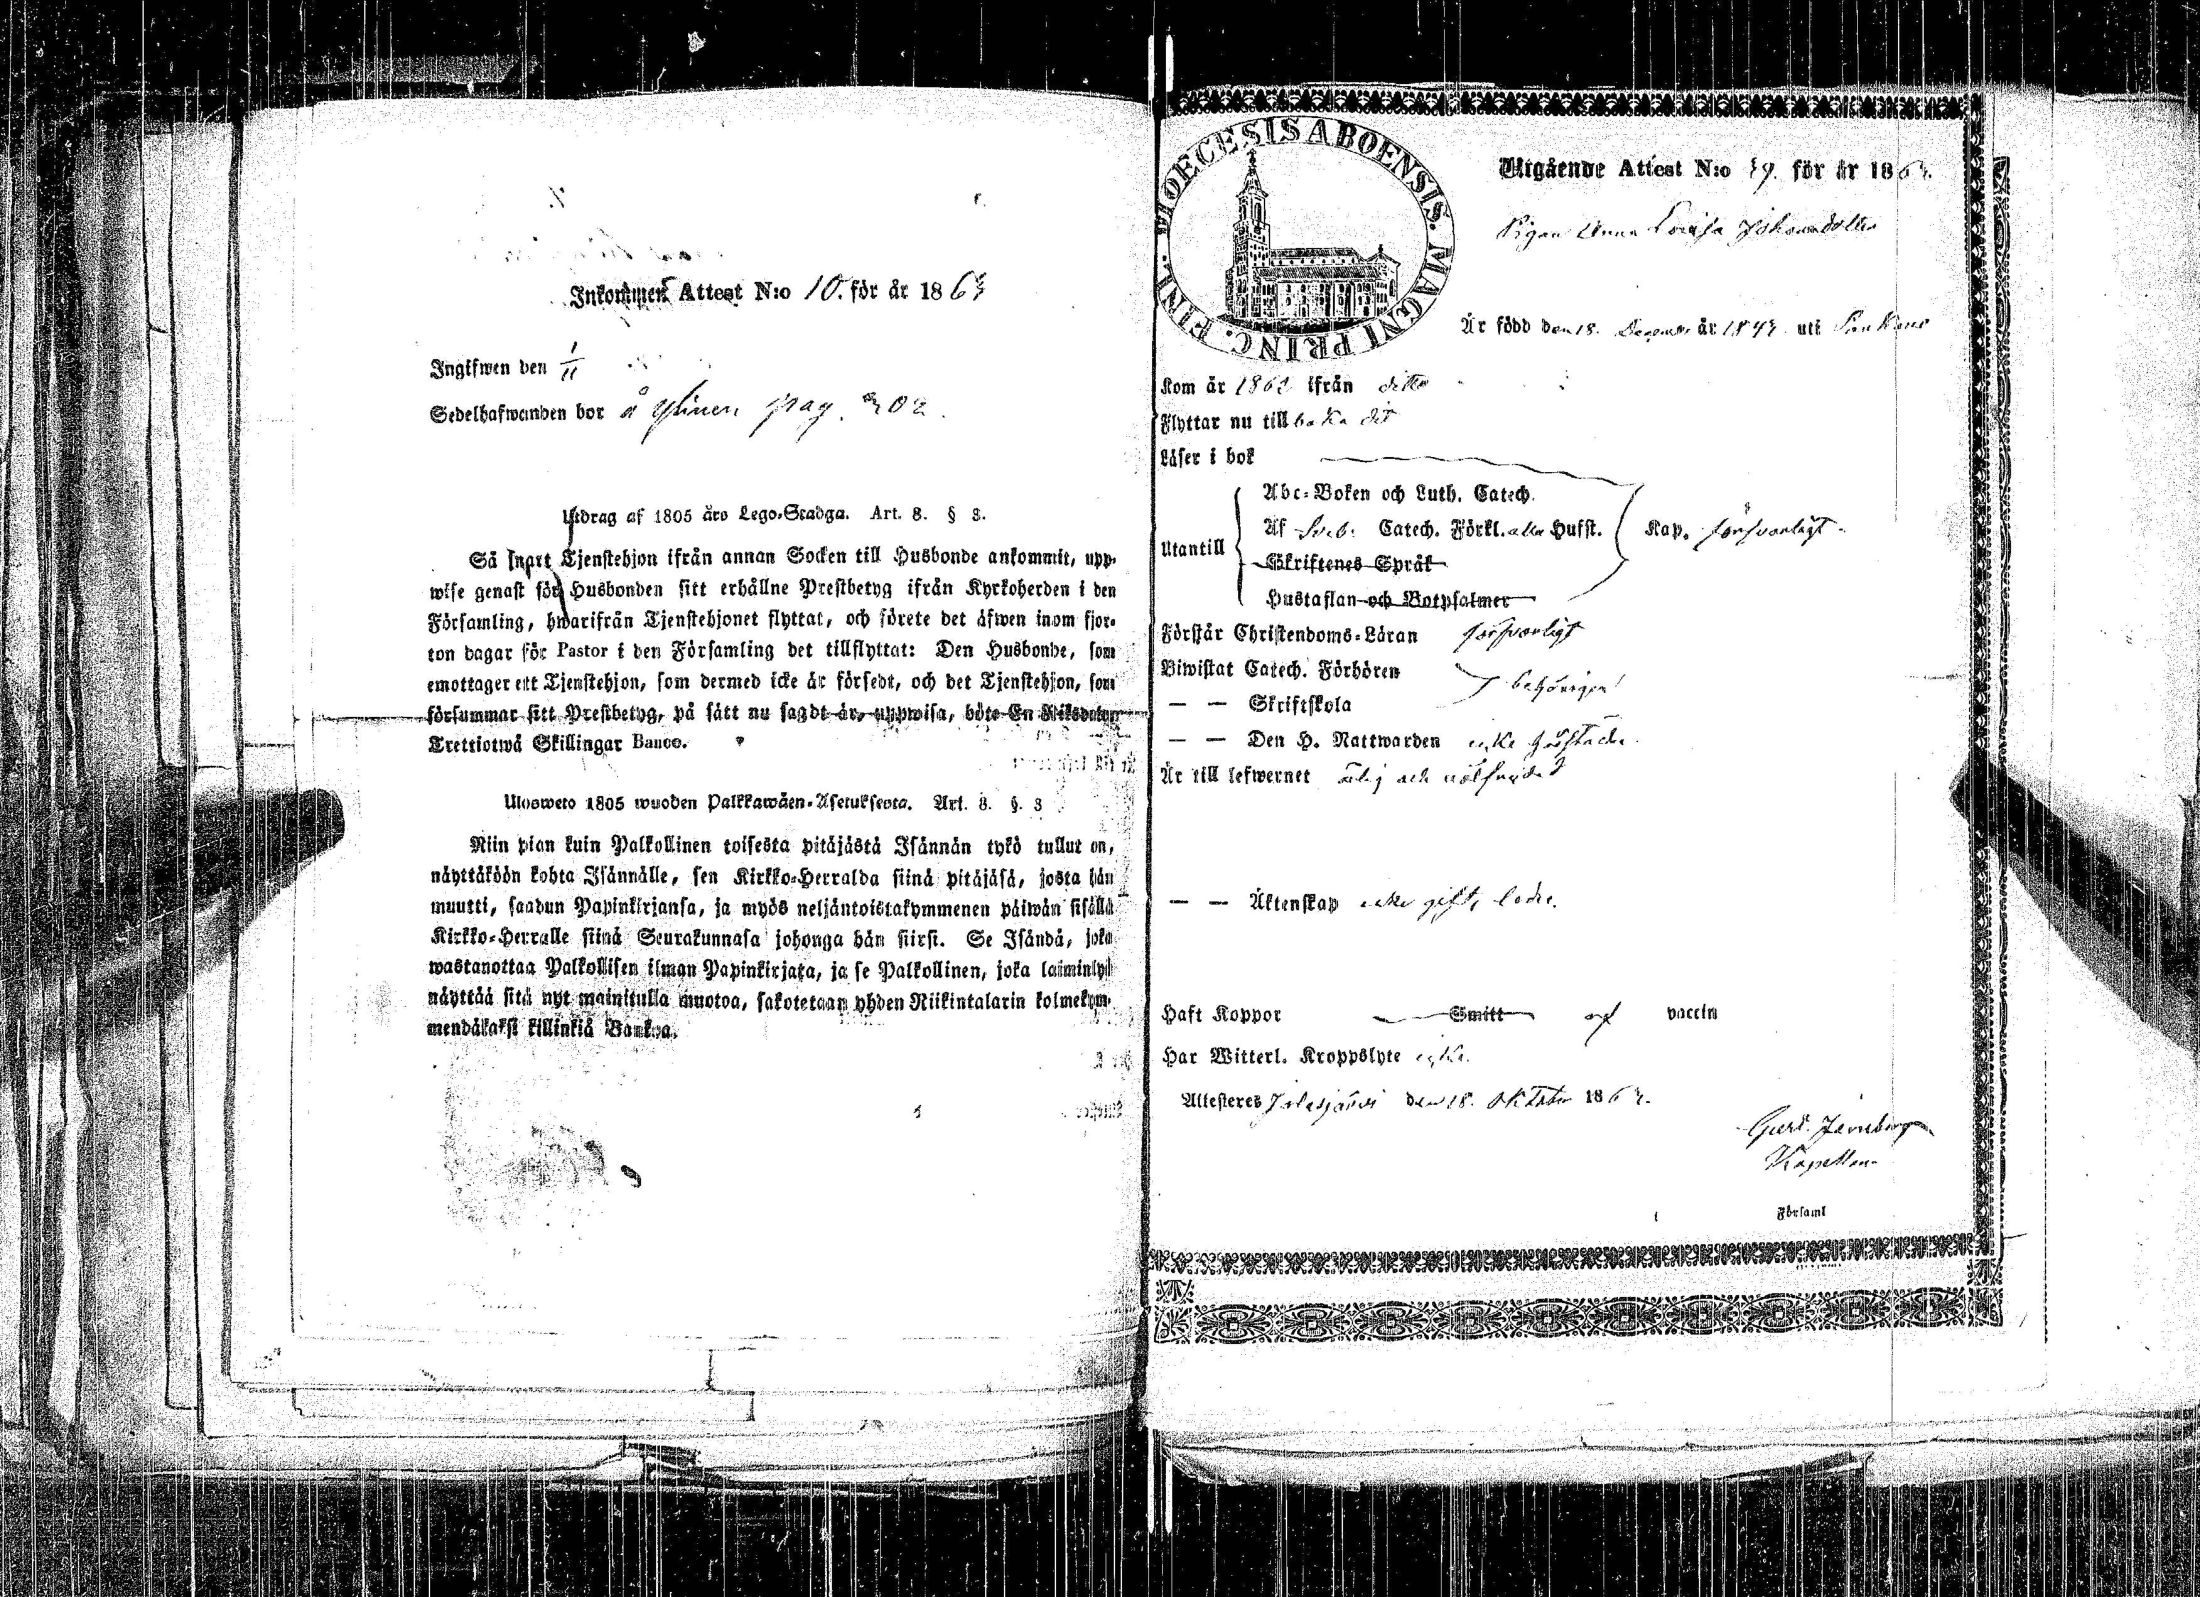 Inkommen Attest N:o 10. för år 1863
Ingifwen den 1/11
Sedelhafwanden bor å Ylinen pag. 302.
Utdrag af 1805 års Lego-Stadga. Art. 8. § 3.
Så snart Tjenstehjon ifrån annan Socken till Husbonde ankommit, upp-
wise genast för Husbonden sitt erhållne Prestbetyg ifrån Kyrkoherden i den
Församling, hwarifrån Tjenstehjonet flyttat, och förete det äfwen inom fjor-
ton dagar för Pastor i den Församling det tillflyttat: Den Husbonde, som
emottager ett Tjenstehjon, som dermed icke är försedt, och det Tjenstehjon, som
försummar sitt Prestbetyg, på sätt nu sagdt är, uppwisa, böte En Riksdaler
Trettiotwå Skillingar Banco.
Ulosweto 1805 wuoden Palkkawäen-Asetuksesta. Art. 8. §. 3
Niin pian kuin Palkollinen toisesta pitäjästä Isännän tykö tullut on,
näyttäköön kohta Isännälle, sen Kirkko-Herralda siinä pitäjäsä, josta hän
muutti, saadun Papinkirjansa, ja myös neljäntoistakymmenen päiwän sisällä
Kirkko-Herralle siinä Seurakunnasa johonga hän siirsi. Se Isändä, joka
wastanottaa Palkollisen ilman Papinkirjata, ja se Palkollinen, joka laiminlyö
näyttää sitä nyt mainitulla muotoa, sakotetaan yhden Riikintalarin kolmekym-
mendäkaksi killinkiä Bankoa.
DIOECESIS ABOENSIS. MAGNI PRINC. FINL.
Utgående Attest N:o 39. för år 1863.
Pigan Anna Lovisa Johansdotter
Är född den 18. December år 1843 uti
Kom år 1862 ifrån ditto
Flyttar nu till baka dit
Läser i bok
Utantill
Abc-Boken och Luth. Catech.
Af Sveb. Catech. Förkl. alla Hufst.
Skriftenes Språk
Hustaflan och Botpsalmer
Kap. försvarligt
Förstår Christendoms-Läran försvarligt
Biwistat Catech. Förhören
— — Skriftskola
behörigen
— — Den H. Nattwarden icke
Är till lefwernet ärlig och välfrejdad
— — Äktenskap icke gift, ledig.
Haft Koppor Smitt af vaccin
Har Witterl. Kroppslyte icke.
Attesteras Jalasjärvi den 18. Oktober 1863.
Kapellan
Församl